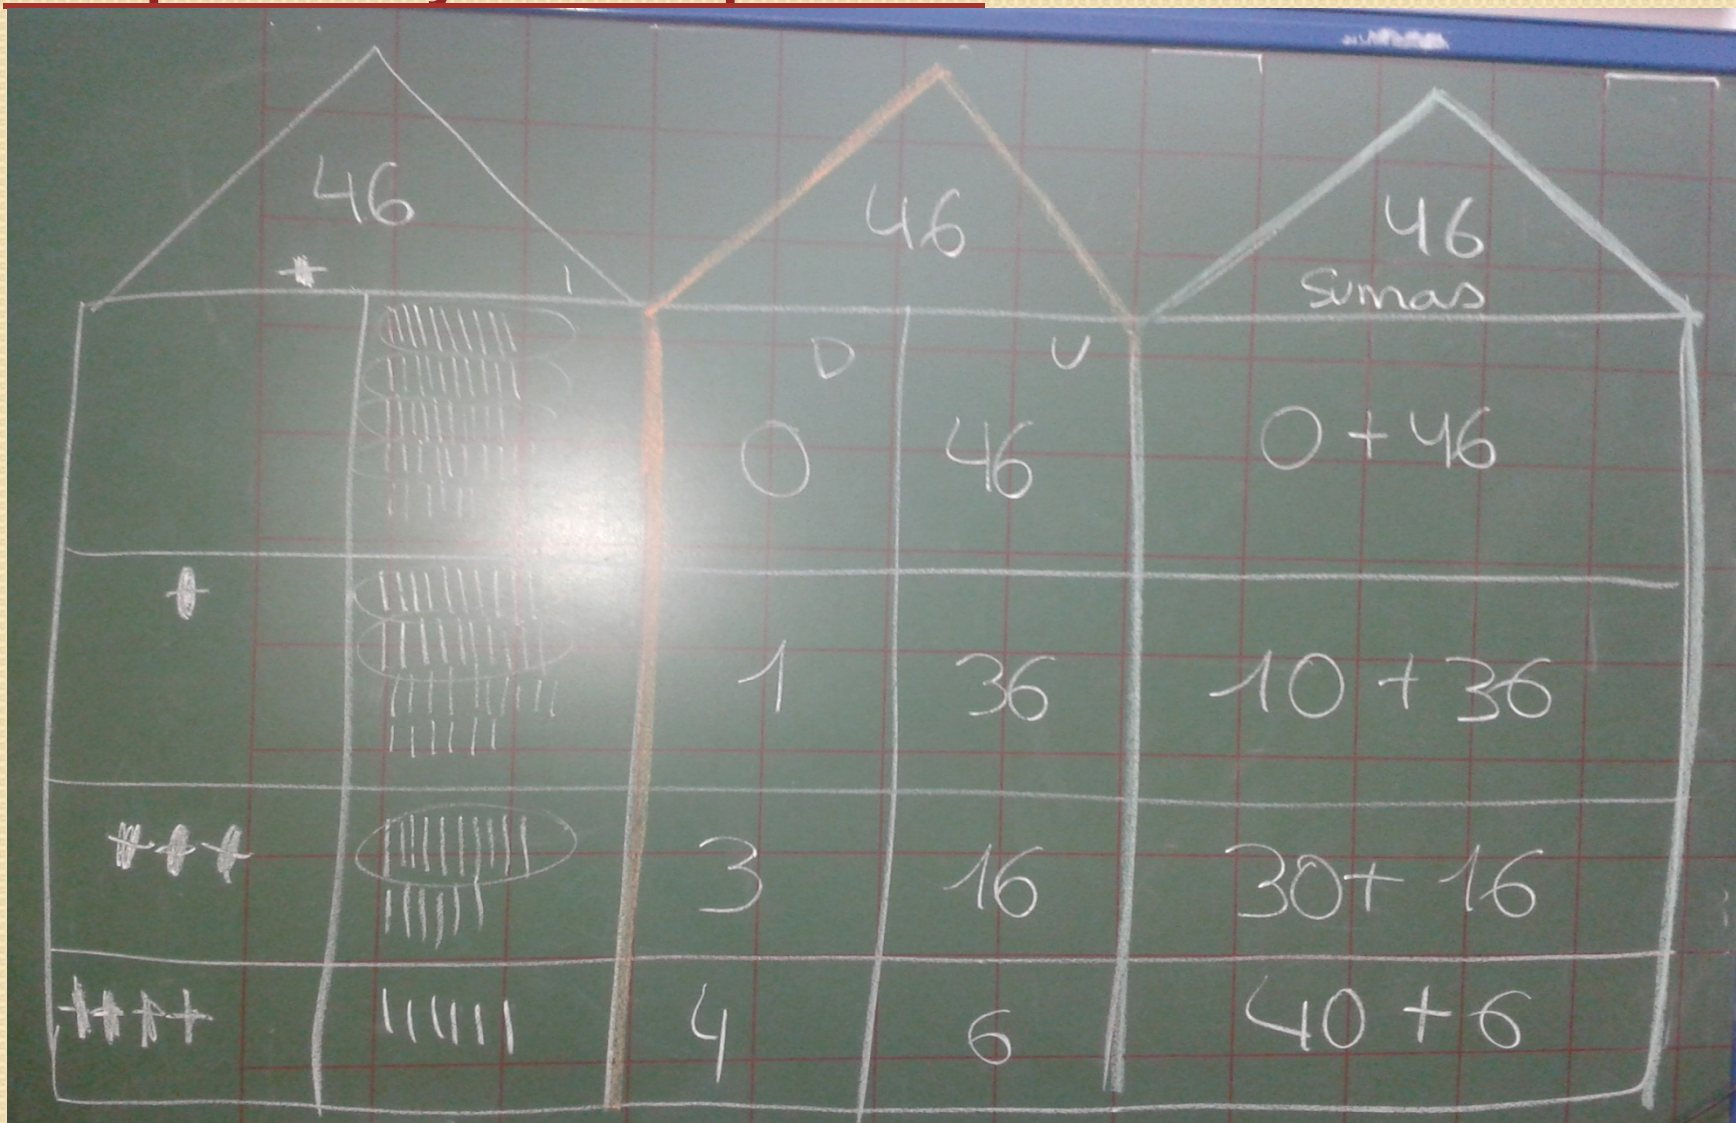 46
46
46
Sumas
D U
0 46 0 + 46
1 36 10 + 36
3 16 30 + 16
4 6 40 + 6